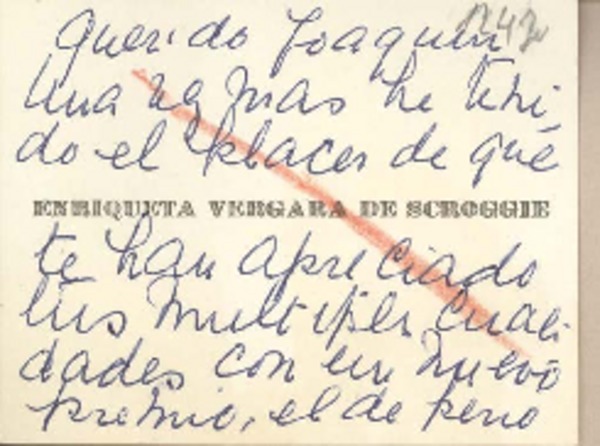 Querido Joaquin
Una vez mas he teni
do el placer de que
ENRIQUETA VERGARA DE SCROGGIE
te han apreciado
tus multiples cuali
dades con un nuevo
premio, el de perio